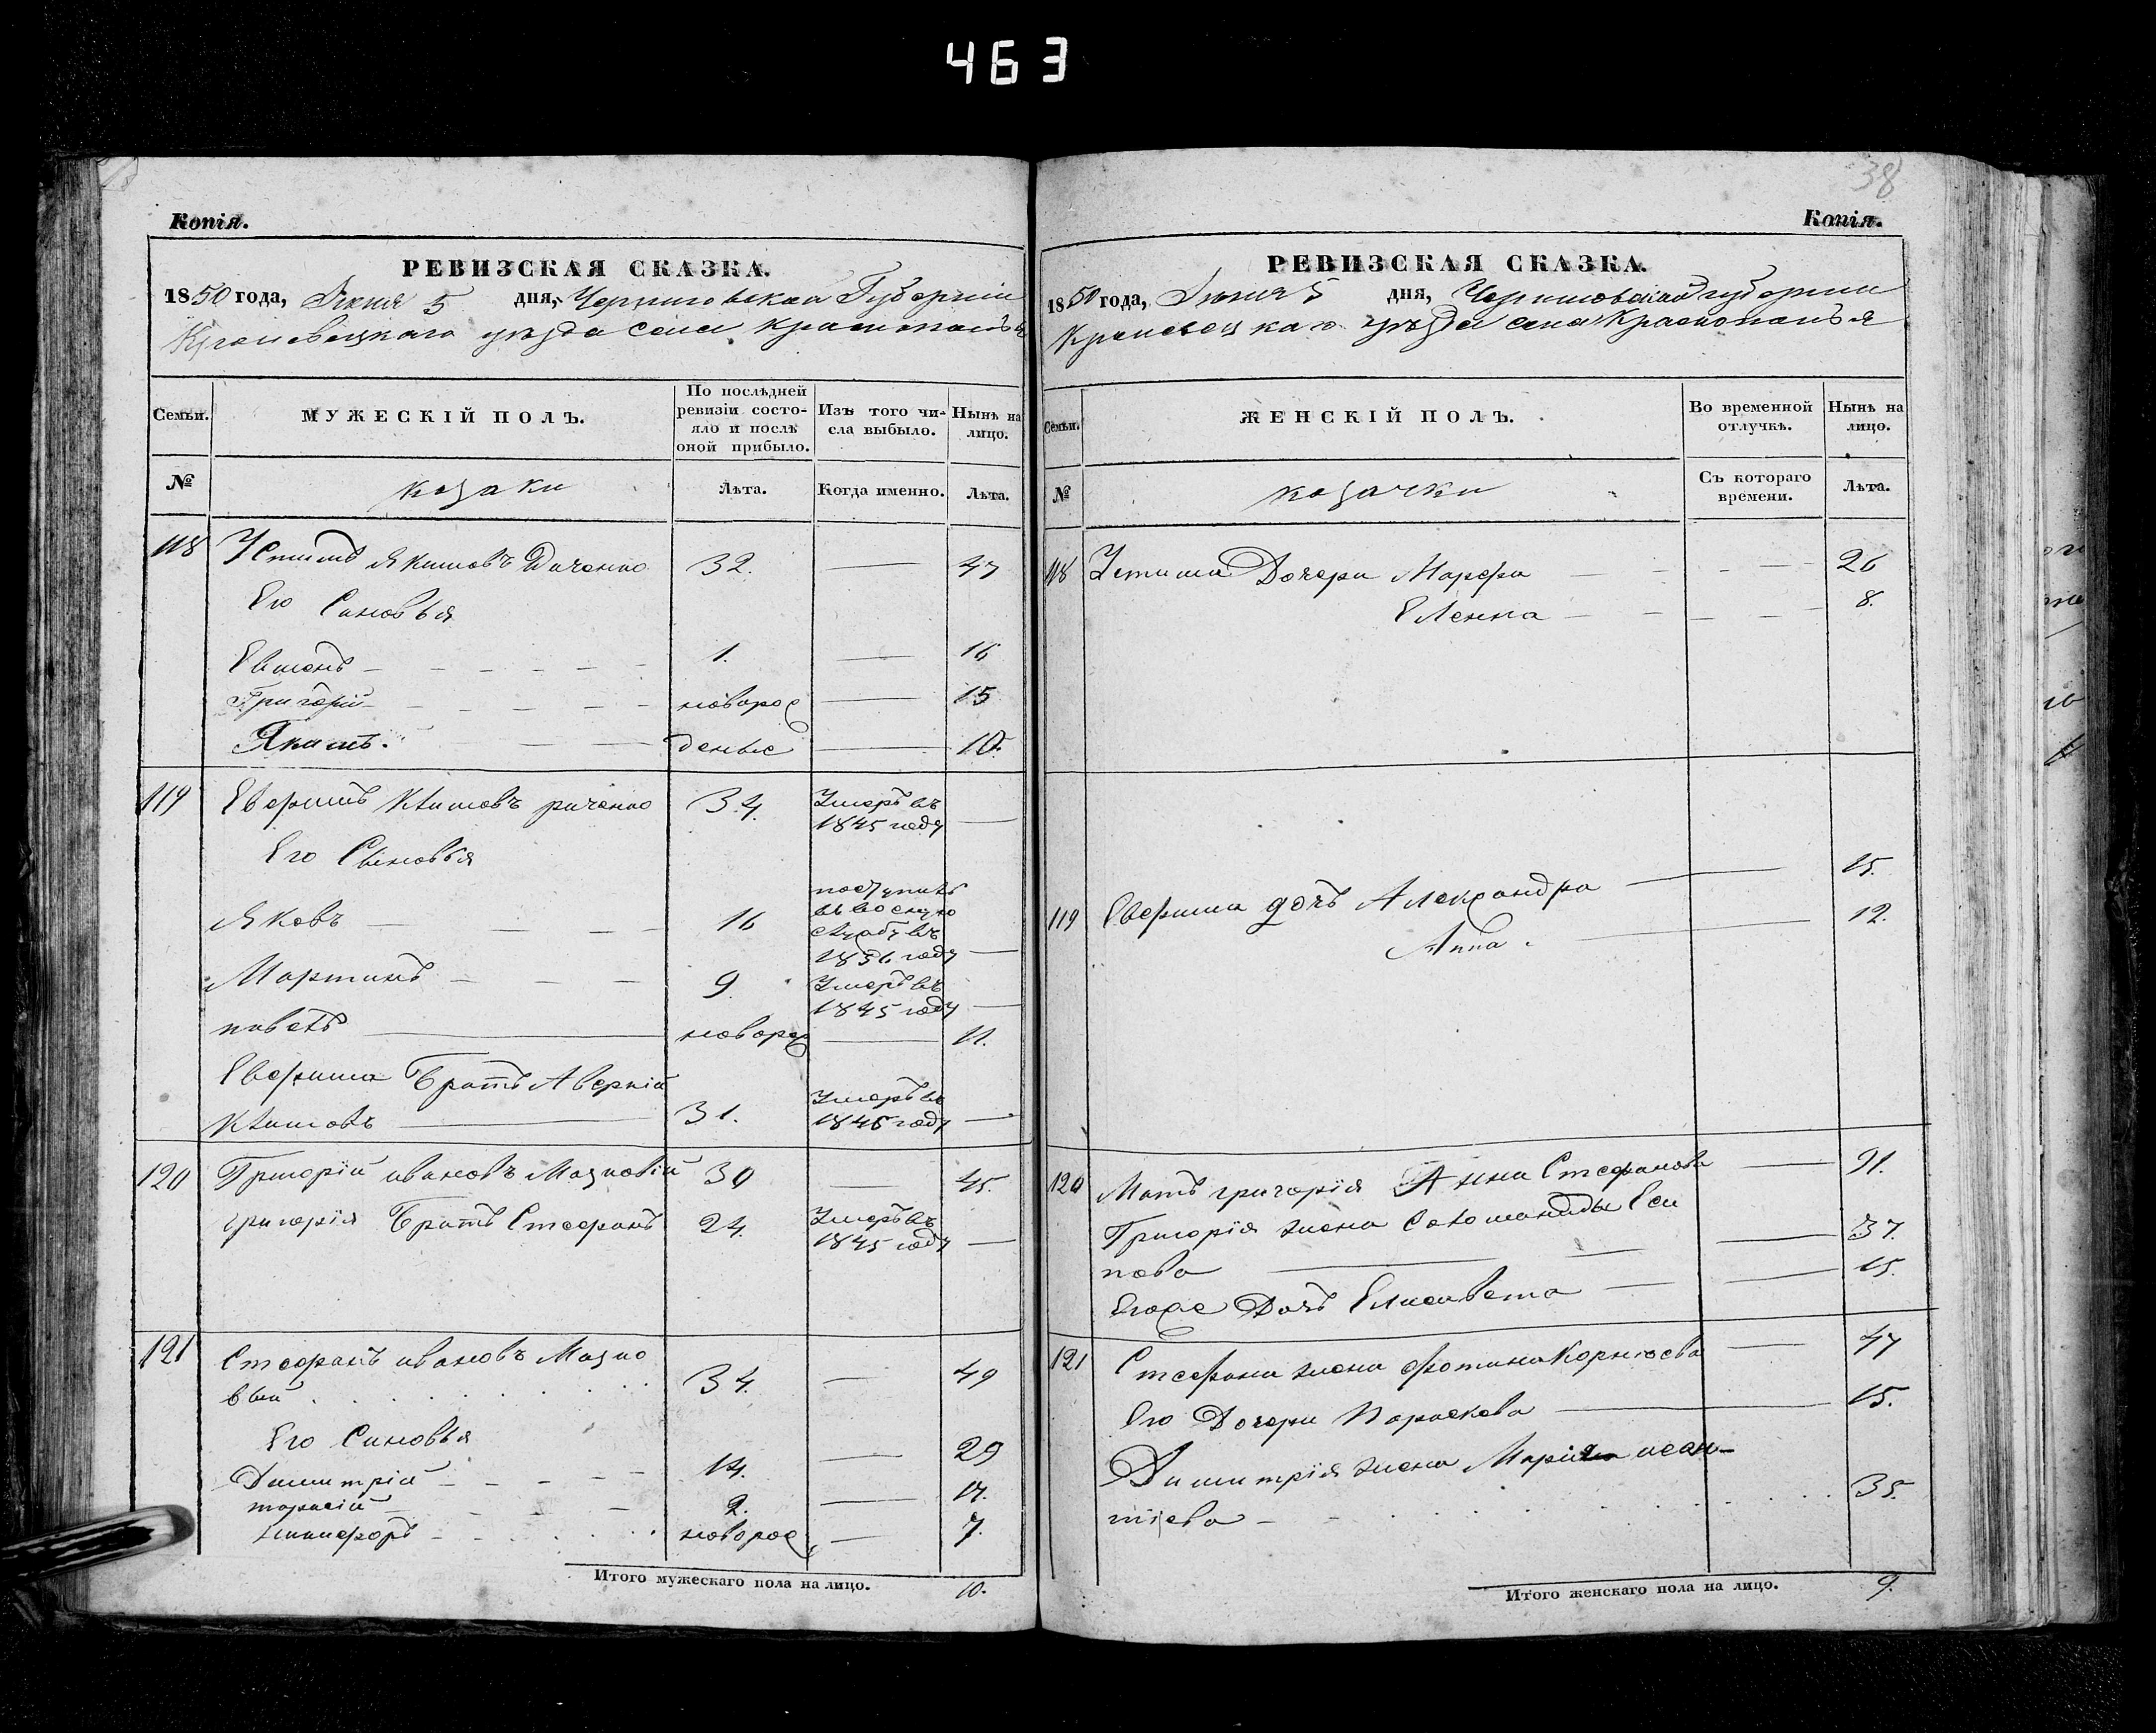 463
38
Копія.
РЕВИЗСКАЯ СКАЗКА.
1850 года, Июня 5 дня, Черниговской Губерніи
Кролевецкаго уѣзда села Краснополья
Семьи.
МУЖЕСКІЙ ПОЛЪ.
По послѣдней ревизіи состояло и послѣ оной прибыло.
Изъ того числа выбыло.
Нынѣ на лицо.
№
козаки
Лѣта.
Когда именно.
Лѣта.
118 32. — 47
Его Синовья
Евменъ 1. — 16
Григорій новорож — 15
Якимъ. деные — 10.
119 Климовъ 34. Умеръ въ 1845 году —
Его Сыновья
Яковъ 16 поступилъ въ военную службу въ 1836 году —
Мартинъ 9 Умеръ въ 1845 году —
павелъ новорож — 11.
Евфима Братъ Аверкій
Климовъ 31. Умеръ въ 1845 году —
120 Григорій ивановъ 30 — 45.
григорія Братъ Стефанъ 24. Умеръ въ 1845 году —
121 Стефанъ ивановъ
вый 34. — 49
Его Синовья
Димитрій 14. — 29
тарасій 2. — 17.
никифоръ новорож — 7.
Итого мужескаго пола на лицо. 10.
Копія.
РЕВИЗСКАЯ СКАЗКА.
1850 года, Июня 5 дня, Черниговской губерніи
Кролевецкаго уѣзда села Краснополья
Семьи.
ЖЕНСКІЙ ПОЛЪ.
Во временной отлучкѣ.
Нынѣ на лицо.
№
козачки
Съ котораго времени.
Лѣта.
118 Устима Дочери Марфа 26
Еленна 8.
119 Евфима дочь Александра — 15.
Анна. — 12.
120 Мать григорія Анна Стефанова — 91.
Григорія жена Соломанида Еси
пова — 37.
Егоже Дочь Елисавета — 15.
121 Стефана жена фотина Корніева — 47
Его Дочери Параскева — 15.
Димитрія жена Марія
тіева 35.
Итого женскаго пола на лицо. 9.